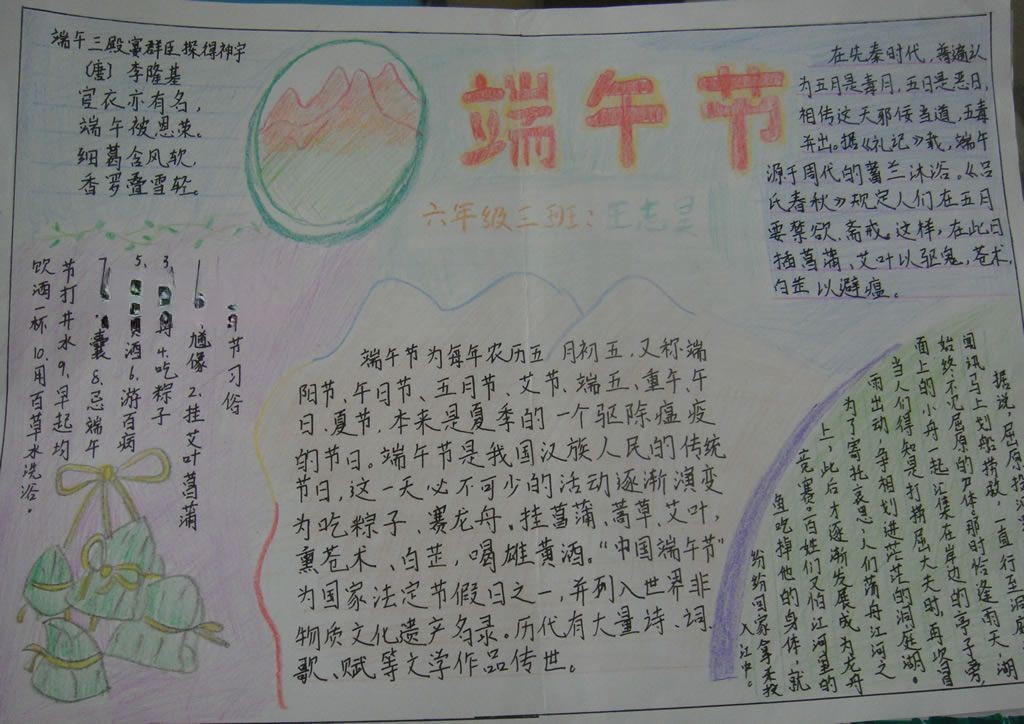 端午三殿宴群臣探得神字
(唐) 李隆基
宫衣亦有名，
端午被恩荣。
细葛含风软，
香罗叠雪轻。
端午节
六年级三班：王志
在先秦时代，普遍认
为五月是毒月，五日是恶日，
相传这天邪佞当道，五毒
并出。据《礼记》载，端午
源于周代的蓄兰沐浴。《吕
氏春秋》规定人们在五月
要禁欲、斋戒。这样，在此日
插菖蒲、艾叶以驱鬼，苍术，
白芷以避瘟。
节习俗
像 2、挂艾叶菖蒲
3、 4、吃粽子
5、 酒 6、游百病
7 囊 8、忌端午
节打井水 9、早起均
饮酒一杯 10、用百草水洗浴。
端午节为每年农历五月初五，又称端
阳节、午日节、五月节、艾节、端五、重午、午
日、夏节，本来是夏季的一个驱除瘟疫
的节日。端午节是我国汉族人民的传统
节日，这一天必不可少的活动逐渐演变
为吃粽子、赛龙舟、挂菖蒲、蒿草、艾叶，
熏苍术、白芷，喝雄黄酒。“中国端午节”
为国家法定节假日之一，并列入世界非
物质文化遗产名录。历代有大量诗、词、
歌、赋等文学作品传世。
据说，屈原投
闻讯马上划船捞救，一直行至洞庭
始终不见屈原的尸体。那时恰逢雨天，湖
面上的小舟一起汇集在岸边的亭子旁，
当人们得知是打捞屈大夫时，再次冒
雨出动，争相划进茫茫的洞庭湖。
为了寄托哀思，人们荡舟江河之
上，此后才逐渐发展成为龙舟
竞赛。百姓们又怕江河里的
鱼吃掉他的身体，就
纷纷回家拿米
入江中。